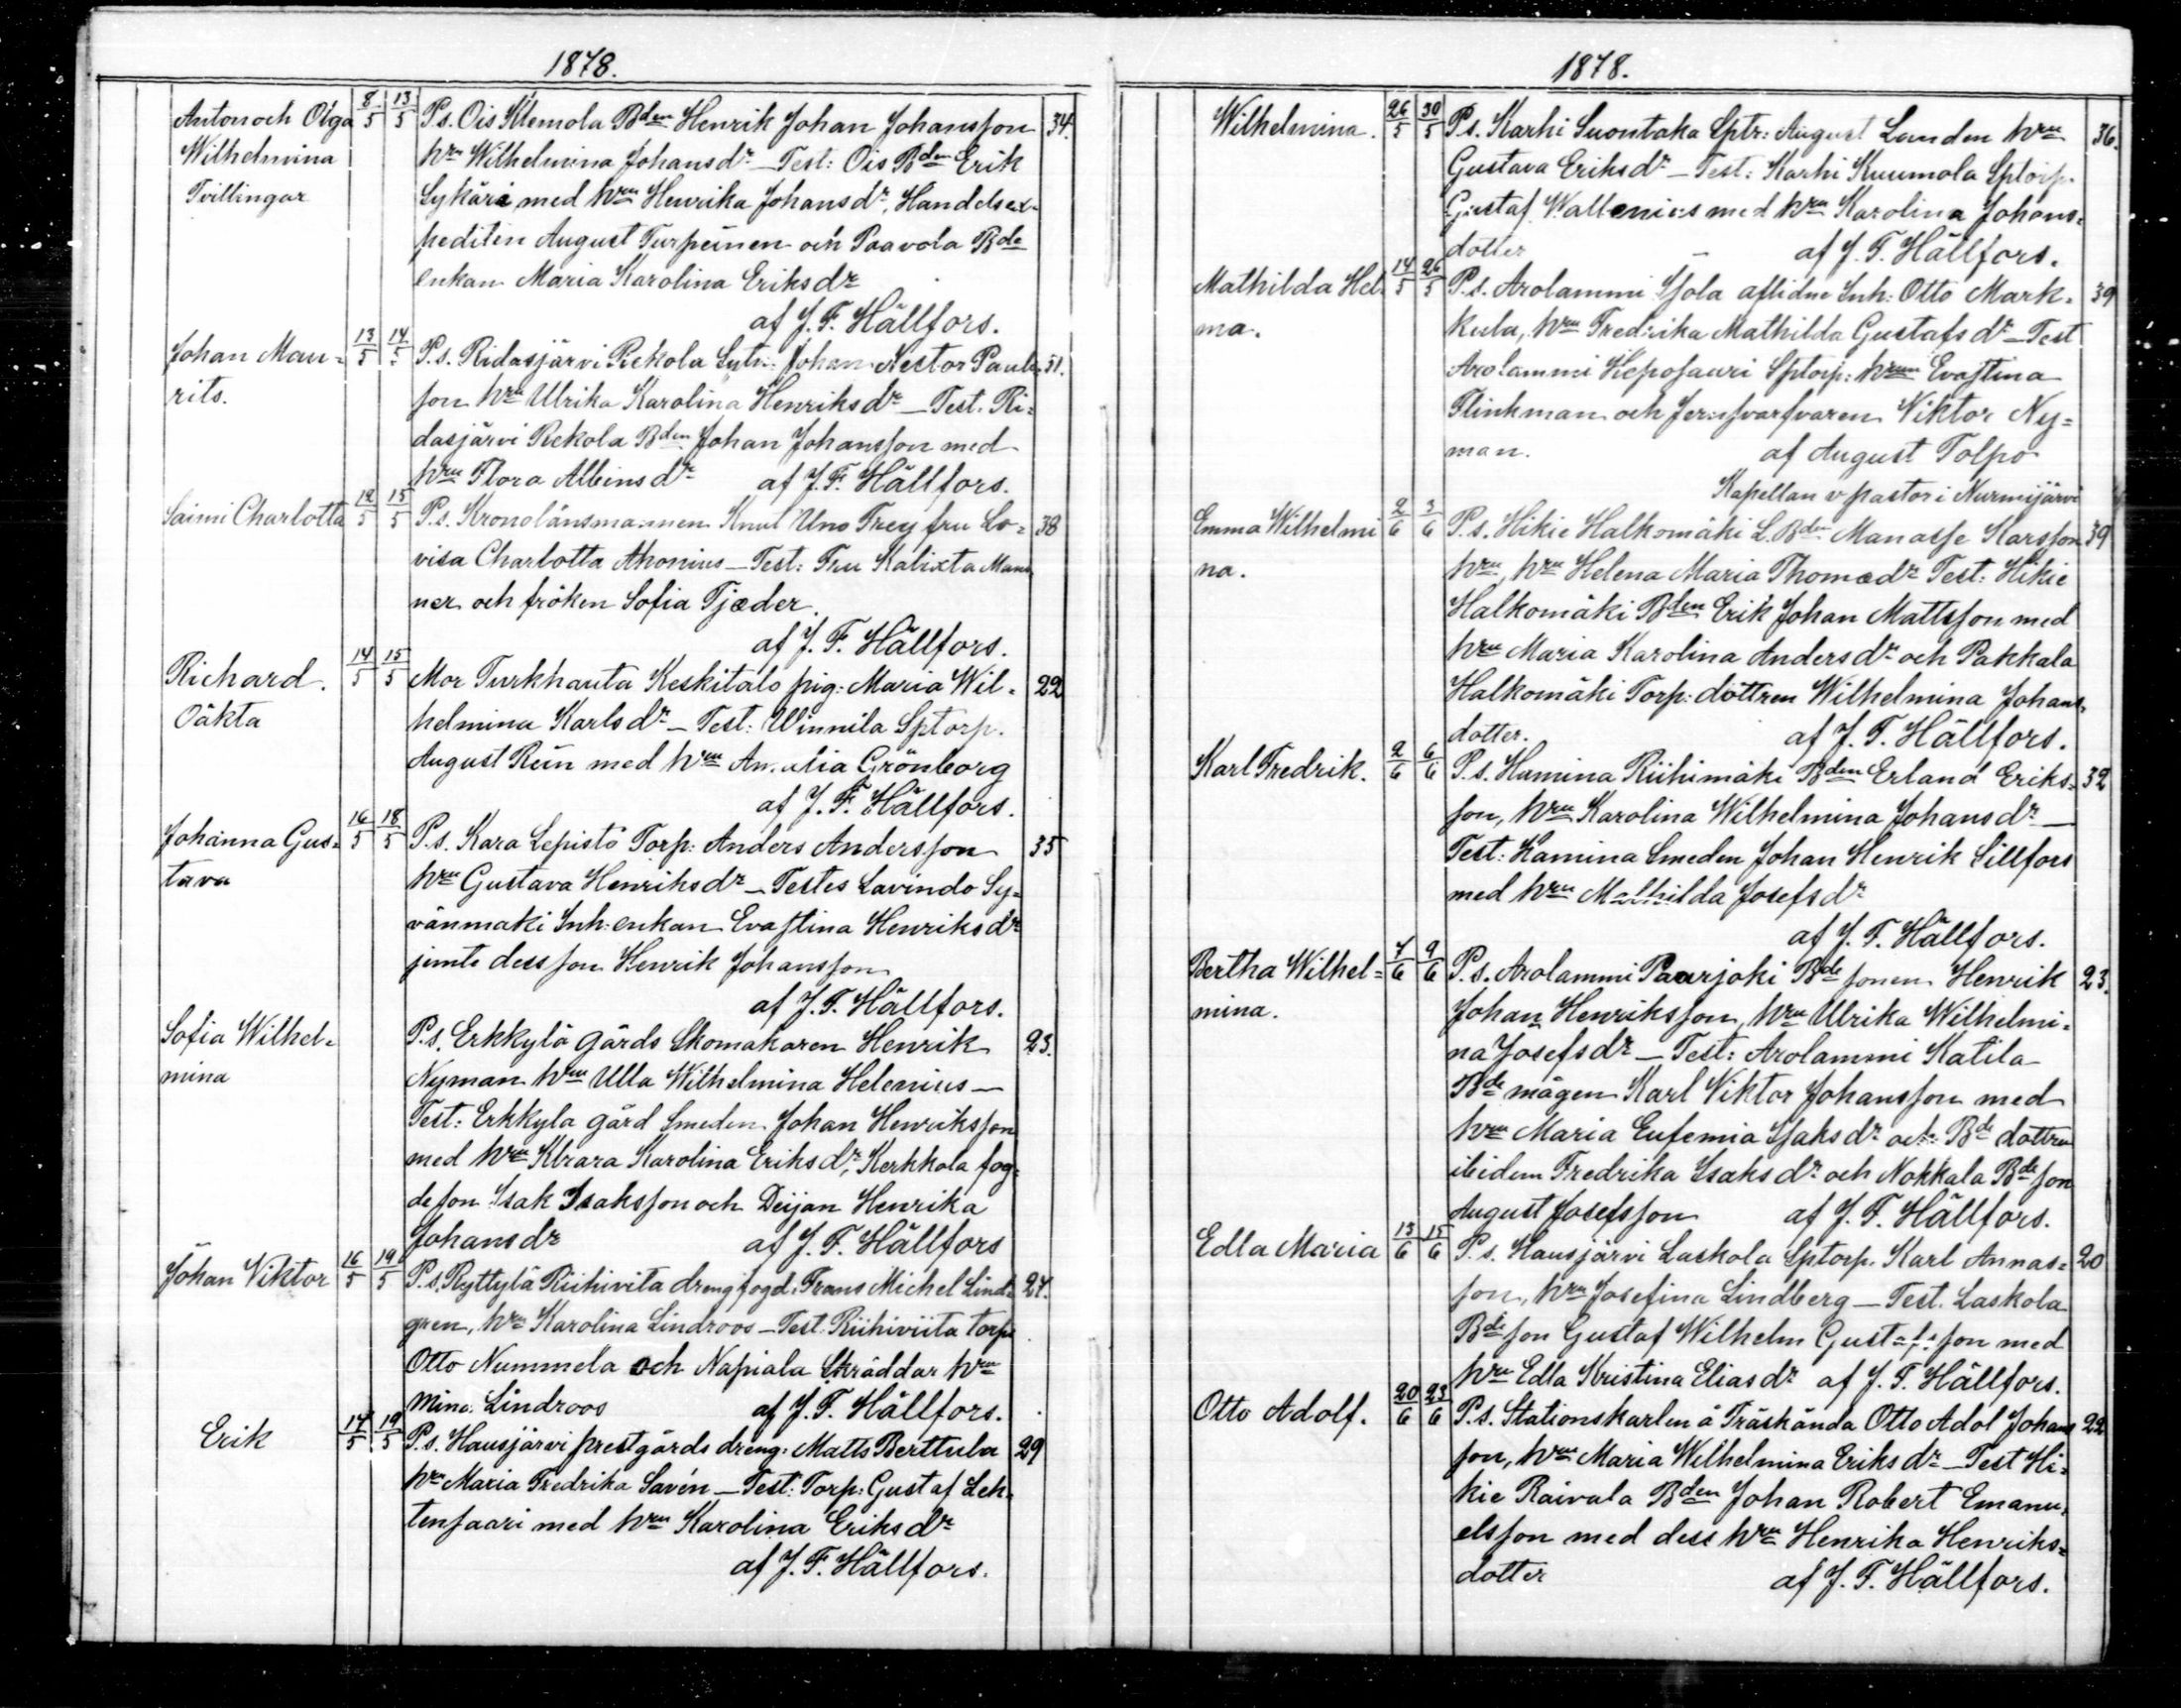 1878.
Anton och Olga 8/5 13/5 P.s. Ois Klemola Bden Henrik Johan Johansson 34.
Wilhelmina hru Wilhelmina Johansdr – Test: Ois Bden Erik
Tvillingar Sykäri med hru Henrika Johansdr, Handelsex-
pediten August Turpeinen och Paavola Bde
enkan Maria Karolina Eriksdr
af J. F. Hällfors.
Johan Mau- 13/5 14/5 P.s. Ridasjärvi Rekola Sytn: Johan Nestor Pauls- 31.
rits. son hru Ulrika Karolina Henriksdr – Test. Ri-
dasjärvi Rekola Bden Johan Johansson med
hru Flora Albinsdr af J. F. Hällfors.
Saimi Charlotta 12/5 15/5 P.s. Kronolänsmannen Knut Uno Frey fru Lo- 38
visa Charlotta Ahonius – Test: Fru Kalixta Mann-
ner och fröken Sofia Tjæder.
af J. F. Hällfors.
Richard. 14/5 15/5 Mor Turkhauta Keskitalo pig: Maria Wil- 22
Oäkta helmina Karlsdr – Test: Winnila Sptorp.
August Rein med hru Amalia Grönborg
af J. F. Hällfors.
Johanna Gus- 16/5 18/5 P.s. Kara Lepistö Torp: Anders Andersson 35
tava hru Gustava Henriksdr – Testes Lavindo Sy-
vänmäki Inh: enkan Evastina Henriksdr
jemte dess son Henrik Johansson
af J. F. Hällfors.
Sofia Wilhel- P.s. Erkkylä gårds Skomakaren Henrik 23.
mina Nyman hru Ulla Wilhelmina Helenius –
Test: Erkkyla gård Smeden Johan Henriksson
med hru Klrara Karolina Eriksdr, Kerkkola fog-
de son Isak Isaksson och Deijan Henrika
Johansdr af J. F. Hällfors
Johan Viktor 16/5 19/5 P.s. Ryttylä Riihivita drengfogd: Frans Michel Lind- 24.
gren, hru Karolina Lindroos – Test. Riihiviita torp
Otto Nummela och Napiala Skräddar hru
Mina Lindroos af J. F. Hällfors.
Erik 14/5 19/5 P.s. Hausjärvi prestgårds dreng: Matts Berttula 29
hru Maria Fredrika Savén – Test: Torp: Gustaf Leh-
tensaari med hru Karolina Eriksdr
af J. F. Hällfors.
1878.
Wilhelmina. 26/5 30/5 P.s. Karhi Suontaka Sptr: August Landen hru 36.
Gustava Eriksdr – Test: Karhi Kuumola Sptorp.
Gustaf Wallenius med hru Karolina Johans-
dotter – af J. F. Hällfors.
Mathilda Hel- 14/5 26/5 P.s. Arolammi Yjola aflidne Inh: Otto Mark- 39
ma. kula, hru Fredrika Mathilda Gustafsdr – Test
Arolammi Heposauri Sptorp: hrun Evastina
Flinkman och Jernsvarfvaren Viktor Ny-
man. af August Tolpo
Kapellan v pastor i Nurmijärvi
Emma Wilhelmi 2/6 3/6 P.s. Hikie Halkomäki L. Bden Manasse Karsson 39
na. hru, hru Helena Maria Thomædr Test: Hikie
Halkomäki Bden Erik Johan Mattsson med
hru Maria Karolina Andersdr och Pakkala
Halkomäki Torp: döttren Wilhelmina Johans-
dotter. af J. F. Hällfors.
Karl Fredrik. 2/6 6/6 P.s. Hamina Riihimäki Bden Erland Eriks- 32
son, hru Karolina Wilhelmina Johansdr –
Test: Hamina Smeden Johan Henrik Sillfors
med hru Mathilda Josefsdr
af J. F. Hällfors.
Bertha Wilhel- 7/6 9/6 P.s. Arolammi Paurjoki Bde sonen Henrik 23.
mina. Johan Henriksson, hru Ulrika Wilhelmi-
na Josefsdr – Test: Arolammi Katila
Bde mågen Karl Viktor Johansson med
hru Maria Eufemia Isaksdr och Bde dottren
ibidem Fredrika Isaksdr och Nokkala Bde son
August Josefsson af J. F. Hällfors.
Edla Maria 13/6 15/6 P.s. Hausjärvi Laskola Sptorp. Karl Annas- 20
son, hru Josefina Lindberg – Test. Laskola
Bde son Gustaf Wilhelm Gustafsson med
hru Edla Kristina Eliasdr af J. F. Hällfors.
Otto Adolf. 20/6 23/6 P.s. Stationskarlen å Träskända Otto Adol Johans 22
son, hru Maria Wilhelmina Eriksdr – Test Hi-
kie Raivala Bden Johan Robert Emanu-
elsson med dess hru Henrika Henriks-
dotter af J. F. Hällfors.